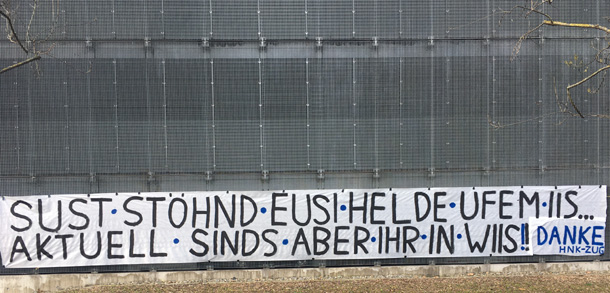 SUST·STÖHND·EUSI·HELDE·UFEM·IIS...
AKTUELL·SINDS·ABER·IHR·IN·WIIS!! DANKE
HNK-ZUG